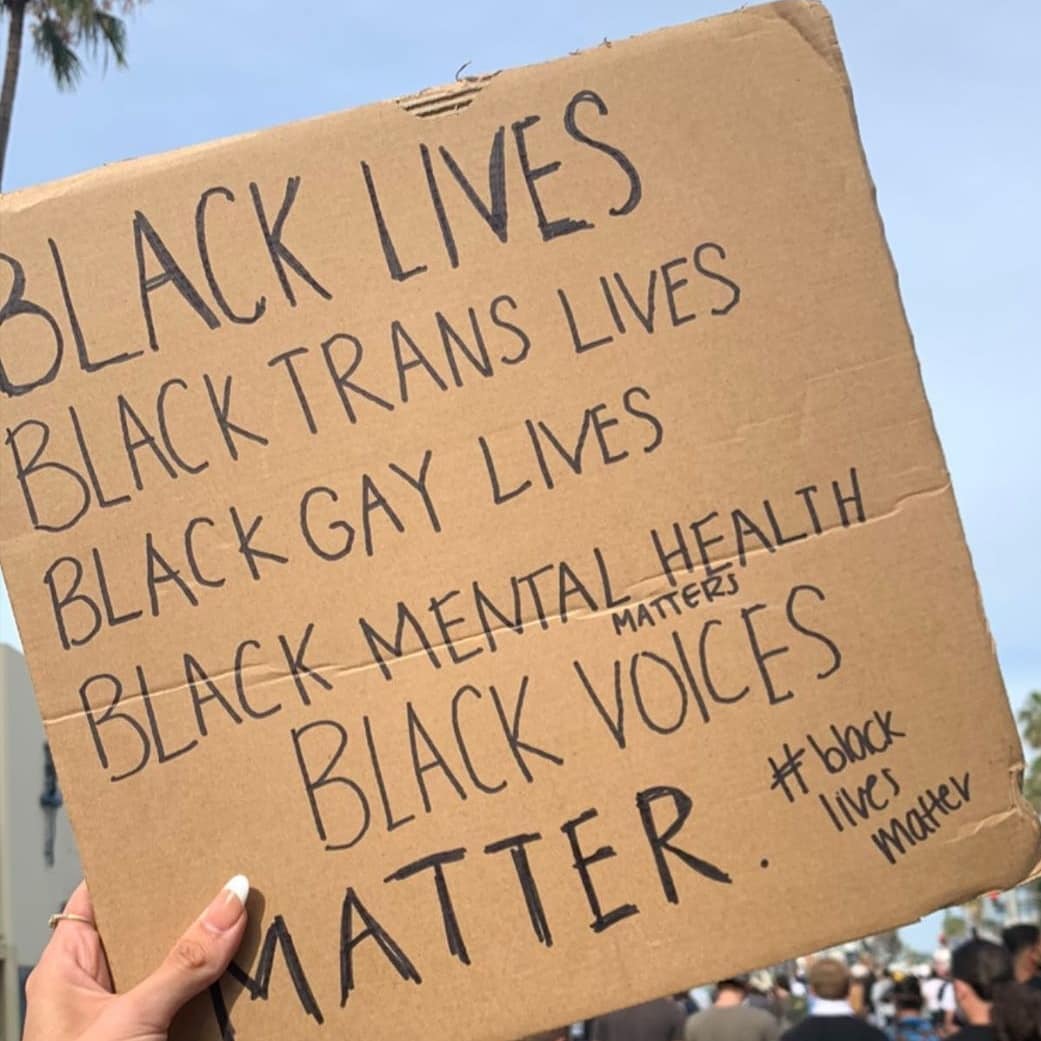 BLACK LIVES
BLACK TRANS LIVES
BLACK GAY LIVES
BLACK MENTAL HEALTH
MATTERS
BLACK VOICES
MATTER.
#black
lives
matter